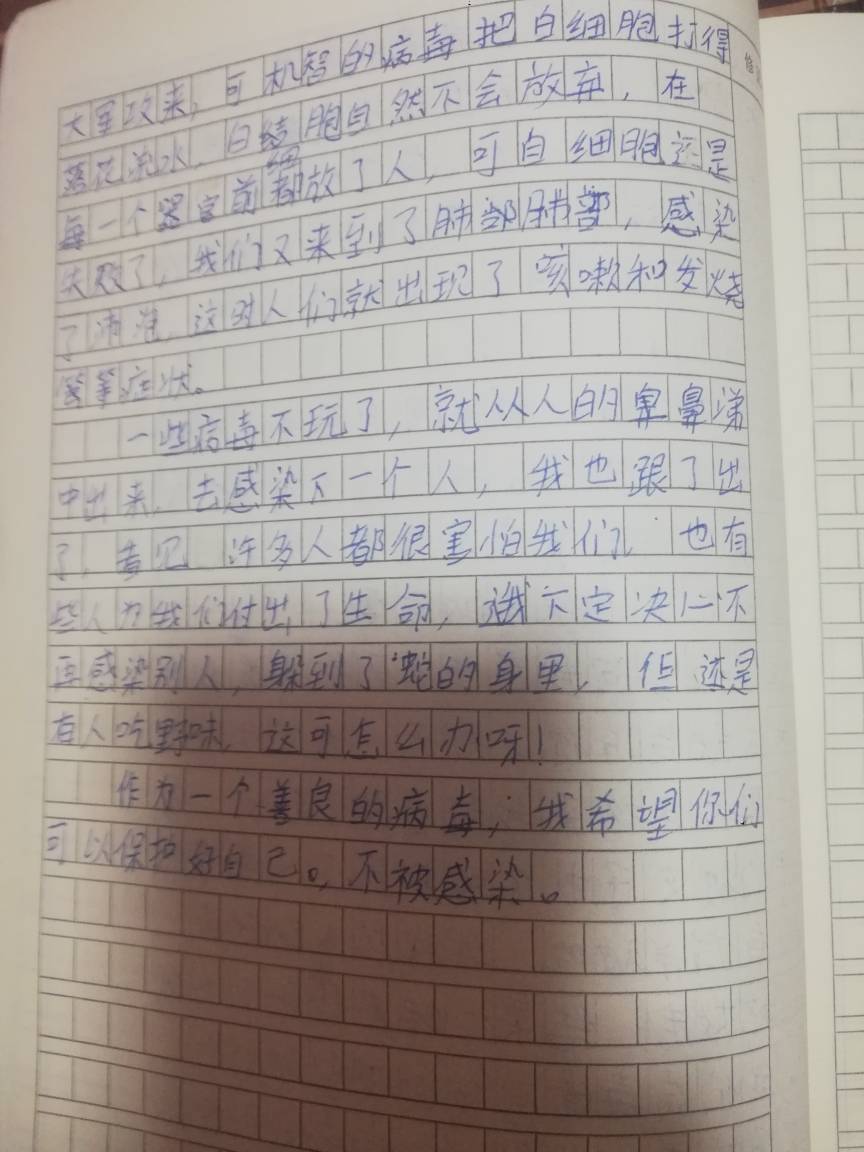 大军攻来，可机智的病毒把白细胞打得
落花流水，白细胞自然不会放弃，在
每一个器官前都放了人，可白细胞还是
失败了，我们又来到了肺部肺部，感染
了肺泡，这时人们就出现了咳嗽和发烧
等等症状。
一些病毒不玩了，就从人的鼻鼻涕
中出来，去感染下一个人，我也跟了出
了，看见许多人都很害怕我们，也有
些人为我们付出了生命，我下定决心不
再感染别人，躲到了蛇的身里，但还是
有人吃野味，这可怎么办呀！
作为一个善良的病毒，我希望你们
可以保护好自己。，不被感染。